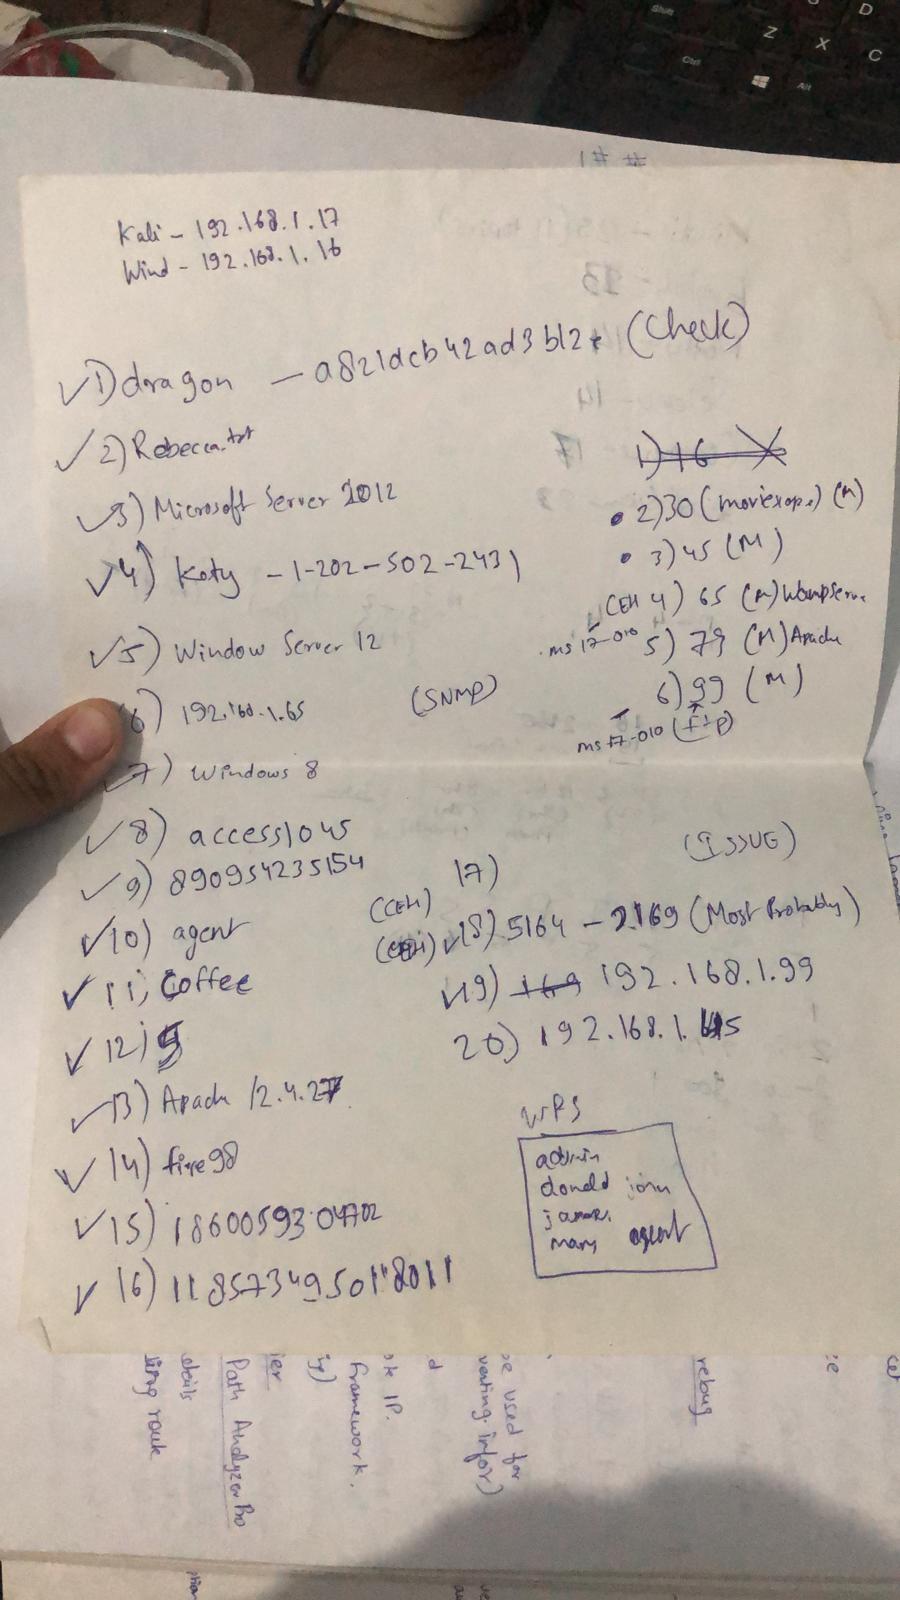 Kali - 192.168.1.17
Wind - 192.168.1.16
1) dragon - a821dcb42ad3b12 (Check)
2) Rebecca.txt
3) Microsoft Server 2012
4) Koty - 1-202-502-2431
5) Window Server 12
6) 192.168.1.65 (SNMP)
7) Windows 8
8) access1045
9) 890954235154
10) agent
11) Coffee
12) 5
13) Apache /2.4.27
14) fire98
15) 1860059304702
16)
1) 16
2) 30 (moviescope) (M)
3) 45 (M)
(CEH 4) 65 (M) Wampserve
ms17-010 5) 79 (M) Apache
6) 99 (M)
ms17-010 (ftp)
(ISSUE)
17)
(CEH)
18) 5164 - 2169 (Most Probably)
19) 169 192.168.1.99
20) 192.168.1.45
WPS
admin
donald john
james
mary agent
Z X C D
Shift
Ctrl
Alt
ling route
details
Path Analyzer Pro
ier
Framework.
IP.
be used for
venting infor)
rebug